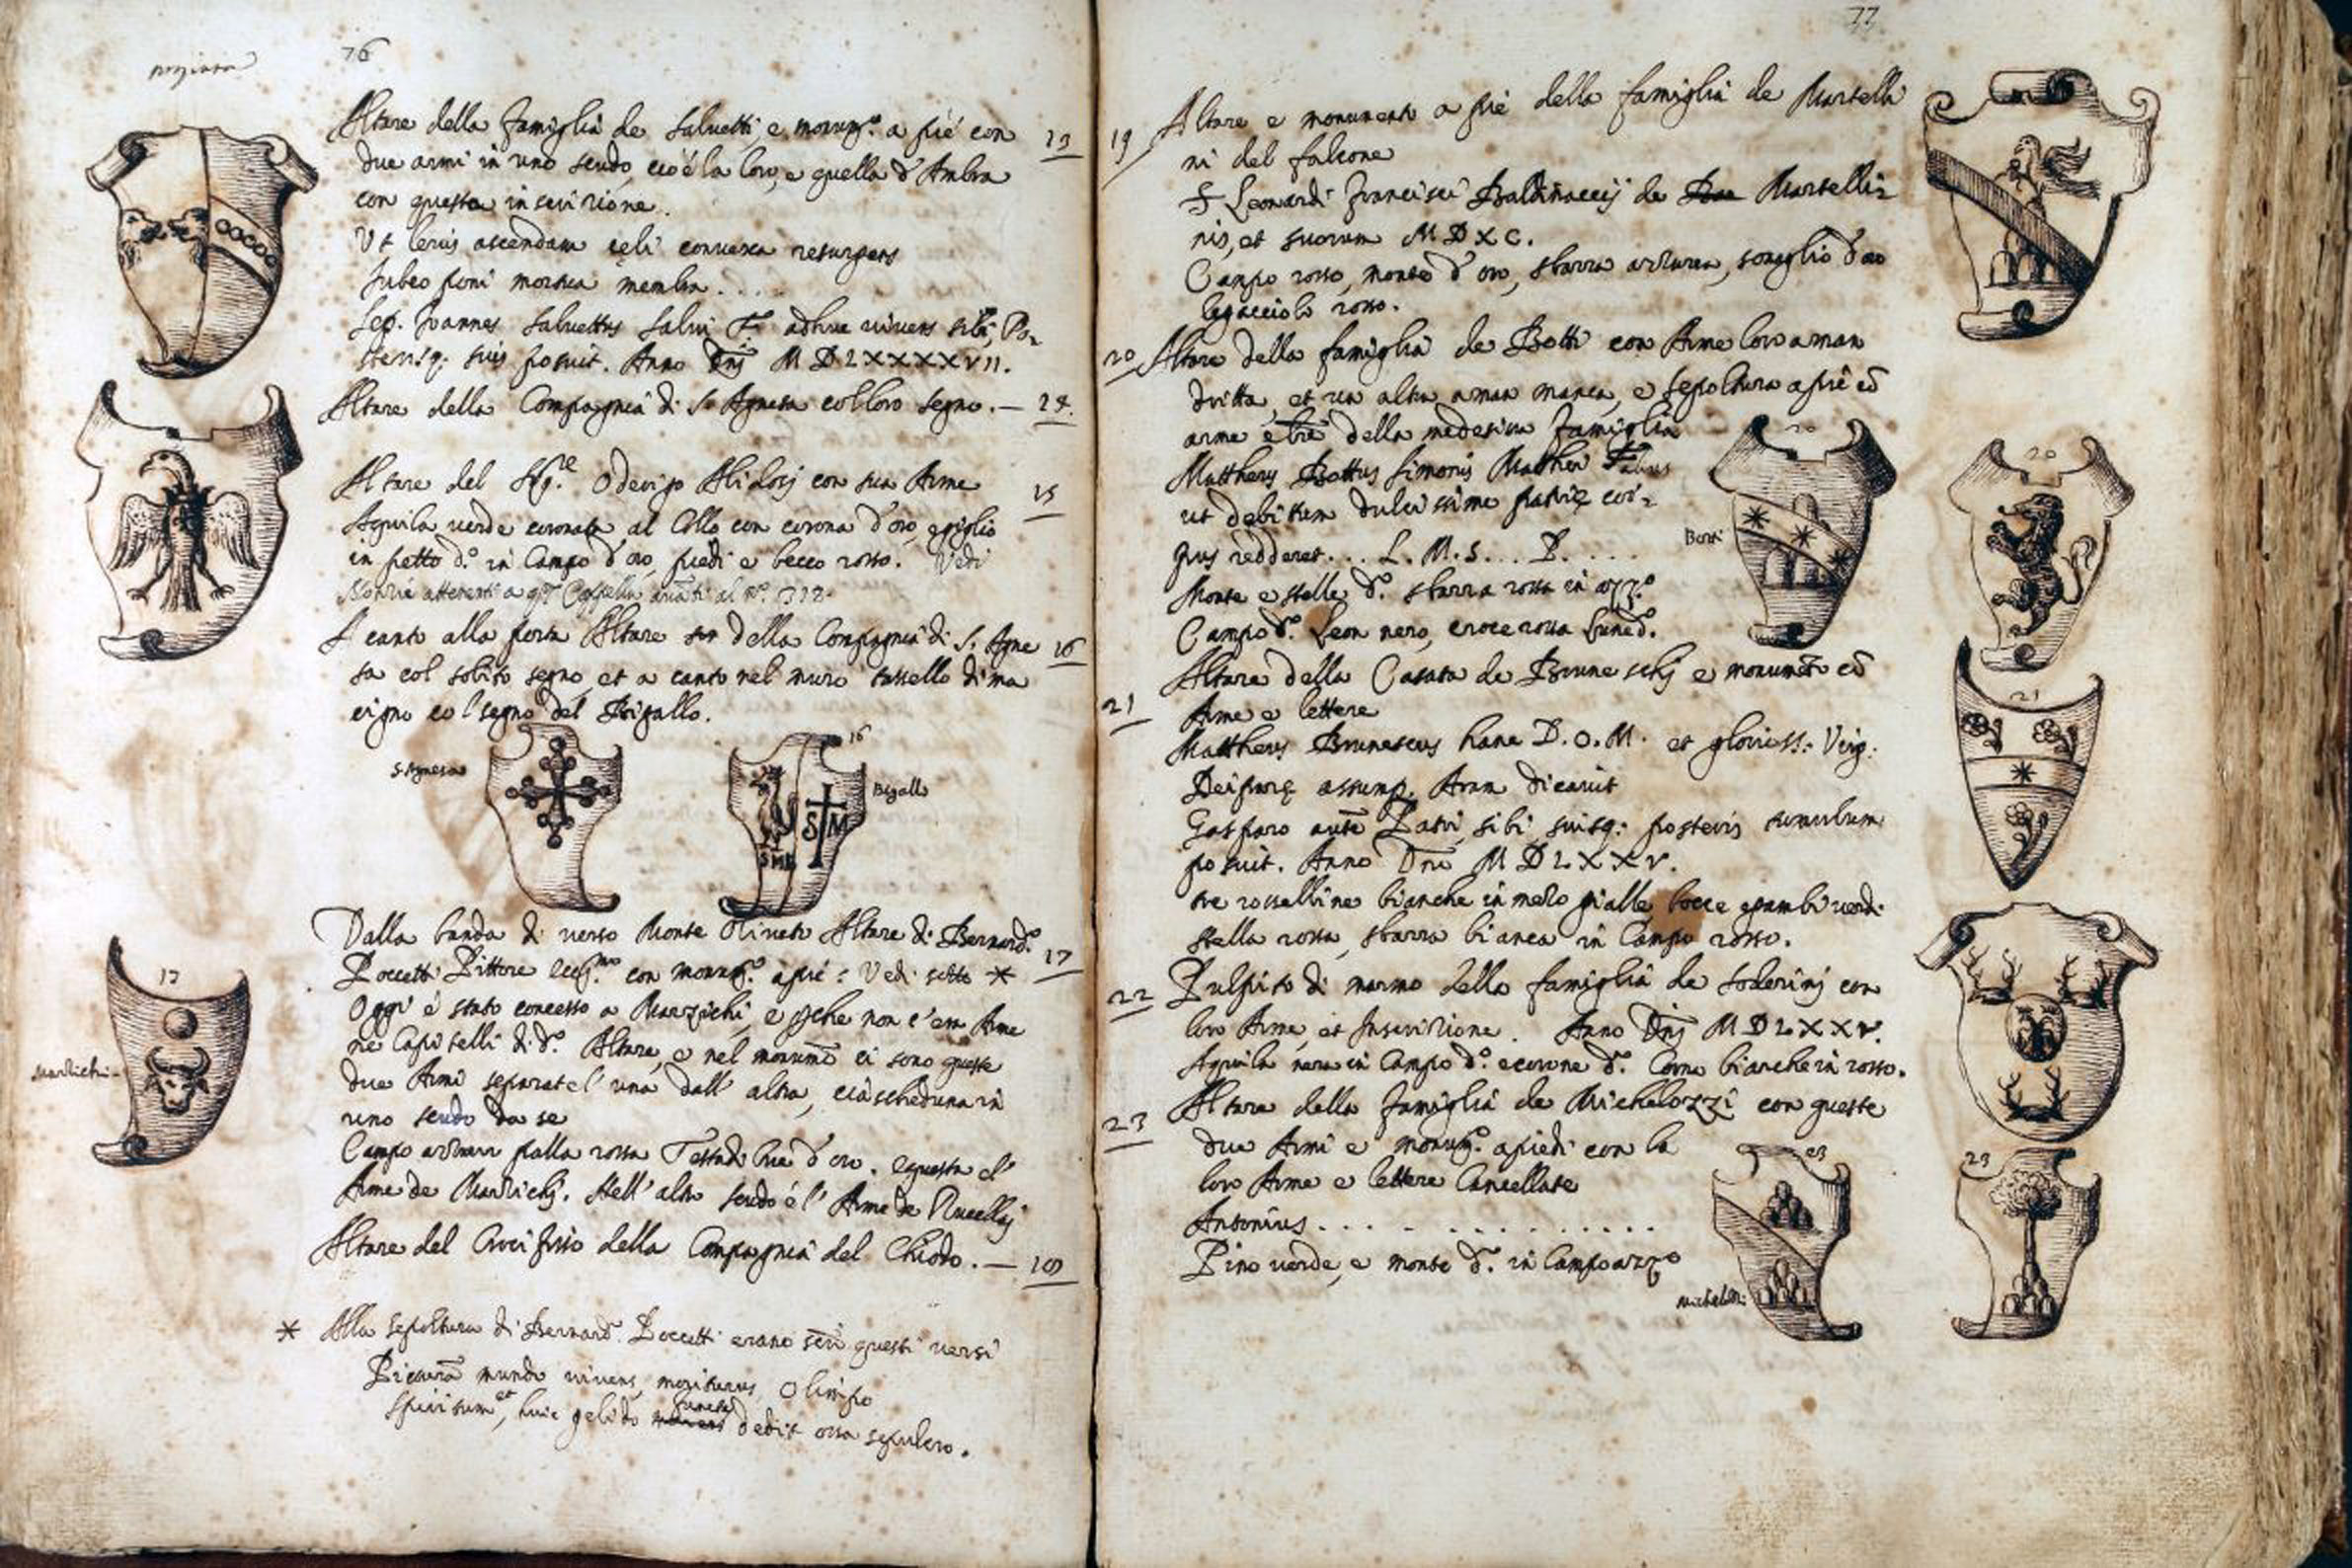 76
Altare della famiglia de Saluetti, e monumto. a piè con 13
due armi in uno scudo, cioè la loro, e quella d'Ambra
con questa inscrizione.
Vt leuis ascendam cęli conuexa resurgens
Jubeo poni mortua membra. . . .
Sep. Joannes Saluettus Saluii F. adhuc uiuens sibi, Po=
sterisq. suis posuit. Anno Dnj M D L X X X X V I I.
Altare della Compagnia di S. Agnesa col loro segno. — 14.
Altare del Sigre. Oderigo Alidosj con sua Arme 15
Aquila uerde coronata al Collo con corona d'oro, e giglio
in petto do. in Campo d'oro, piedi e becco rosso. Vedi
Notizie attenenti a qta. Cappella auanti al No. 312.
A canto alla porta Altare della Compagnia di S. Agne 16
sa col solito segno, et a canto nel muro tassello di ma
cigno col segno del Bigallo.
S. Agnesa
16
Bigallo
S M
SMB
Dalla banda di uerso Monte Oliueto Altare di Bernardo. 17
Poccetti Pittore eccmo. con monumto. a piè: Vedi sotto *
Oggi è stato concesso a Marzichi, e perche non c'era Arme
ne Capitelli di do. Altare, e nel monumto ci sono queste
due Armi separate l'una dall'altra, ciascheduna in
uno scudo da se
17
Marzichi
Campo azzurro palla rossa Testa di bue d'oro. e questa è l'
Arme de Marzichj. Nell'altro scudo è l'Arme de Rucellaj
Altare del Crocifisso della Compagnia del Chiodo. — 18
* Alla sepoltura di Bernardo. Poccetti erano scri questi uersi
Picturã mundo uiuens, moriturus Olimpo
Spiritum et, huic gelido funere dedit ossa sepulcro.
77
19 Altare e monumento a piè della famiglia de Martelli
ni del falcone
S Leonardi Francisci Baldinaccij de Martelli=
nis, et suorum M D X C.
Campo rosso, monte d'oro, sbarra azzurra, sonaglio d'oro
legacciolo rosso.
20 Altare della famiglia de Botti con Arme loro a man
dritta, et un altra a man manca, e sepoltura a piè cõ
arme e lr̃e della medesima famiglia
Mattheus Bottus Simonis Matthei
ut debitum dulcissime patrię cor=
pus redderet. . . L. M. S. . . P. . . . .
Monte e stelle do. sbarra rossa in azzo.
Campo do. Leon nero, croce rossa
20
Botti
20
21 Altare della Casata de Bruneschj e monumto cõ
Arme e lettere
Mattheus Brunescus hanc D. O. M. et glorioss: Virg:
Deiparę assump. Aram dicauit
Gasparo autẽ Patri, sibi suisq: posteris tumulum
posuit. Anno Dni M D L X X V.
tre rosselline bianche in mezo gialle bocce e gambi uerdi
stella rossa, sbarra bianca in Campo rosso.
21
22 Pulpito di marmo della famiglia de Soderinj con
loro Arme, et Inscrizione. Anno Dnj M D L X X V.
Aquila nera in Campo do. e corone do. Corna bianche in rosso.
23 Altare della famiglia de Michelozzi con queste
due Armi e monumto. a piedi con la
loro Arme e lettere Cancellate
Antonius . . . . . . . . . . .
Pino uerde, e monte do. in Campo azzo
23
Michelozi
23